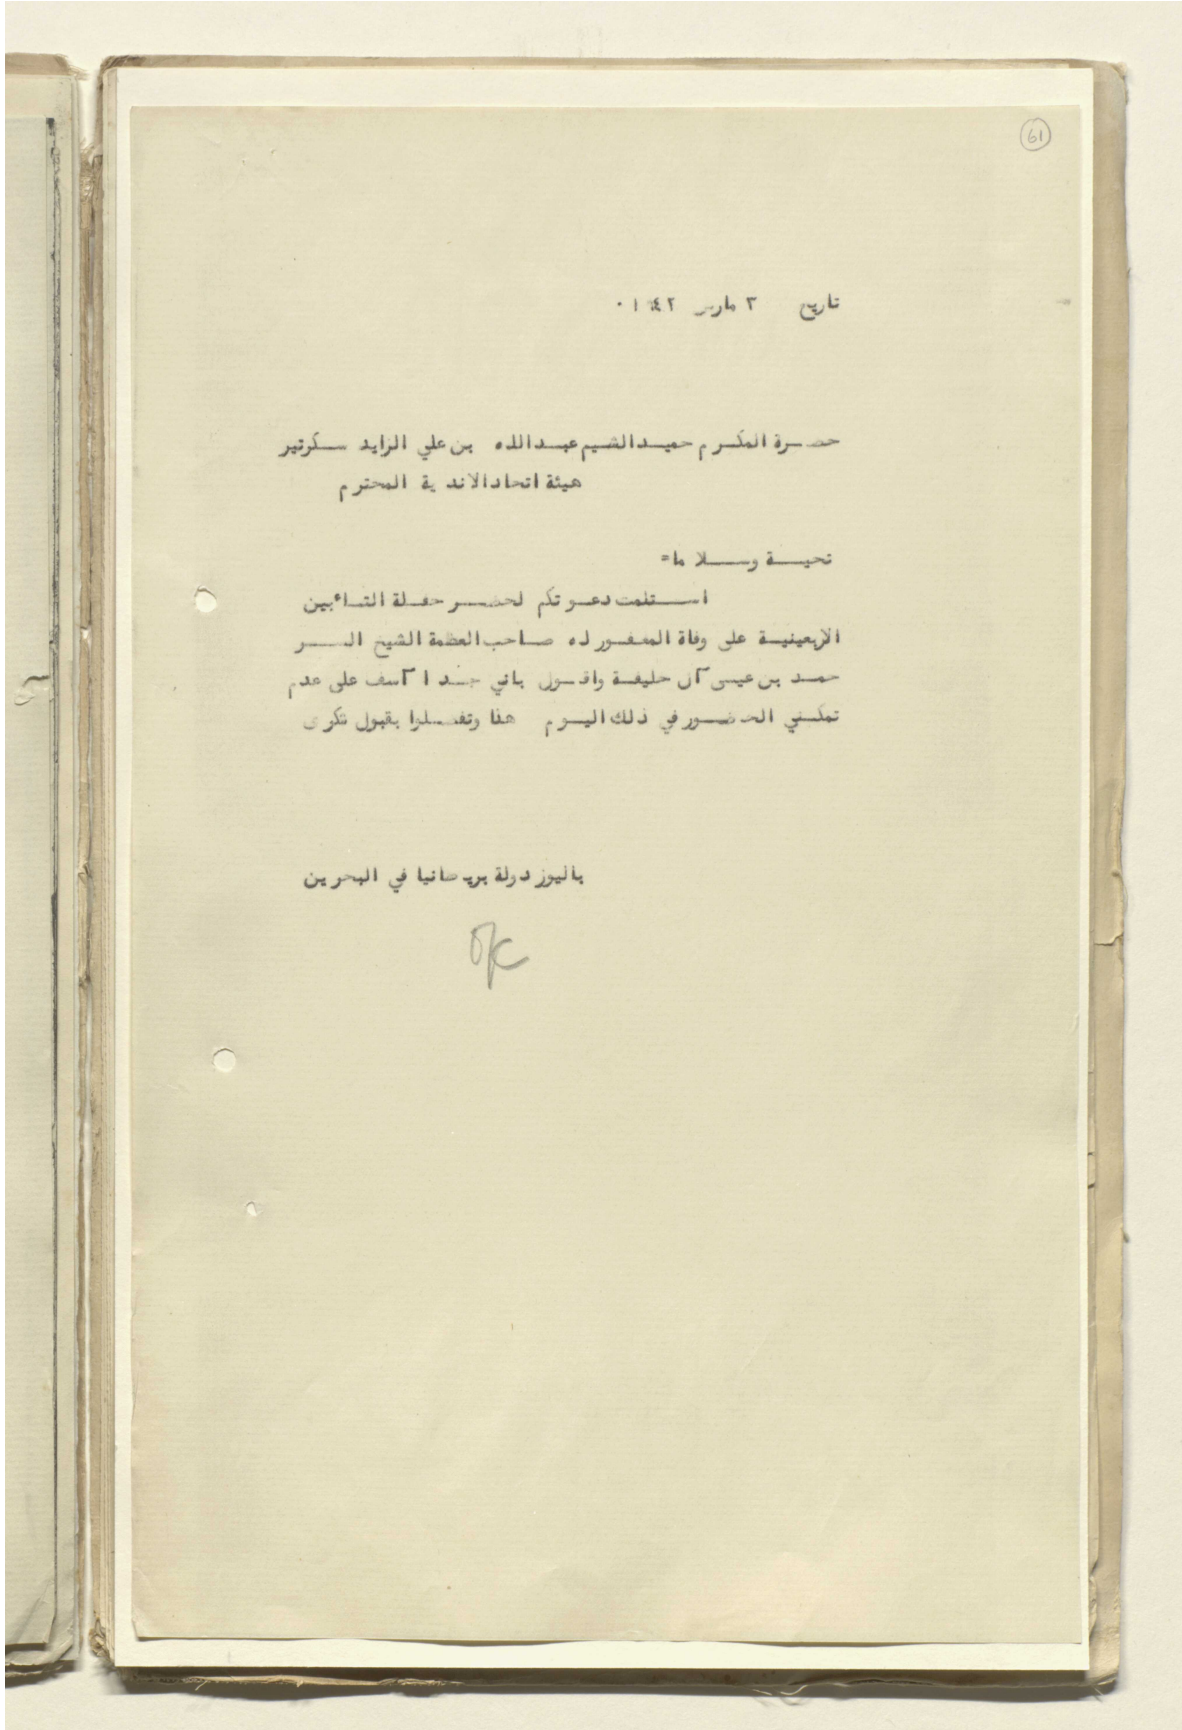 61
تاريخ ٣ مارس ١٩٤٢٠
حضرة المكرم حميد الشيم عبد الله بن علي الزايد سكرتير
هيئة اتحاد الاندية المحترم
تحية وسلاما=
استلمت دعوتكم لحضر حفلة التاءبين
الاربعينية على وفاة المغفور له صاحب العظمة الشيخ السر
حمد بن عيسى آل خليفة واقول باني جدا آسف على عدم
تمكني الحضور في ذلك اليوم هذا وتفضلوا بقبول شكرى
باليوز دولة بريطانيا في البحرين